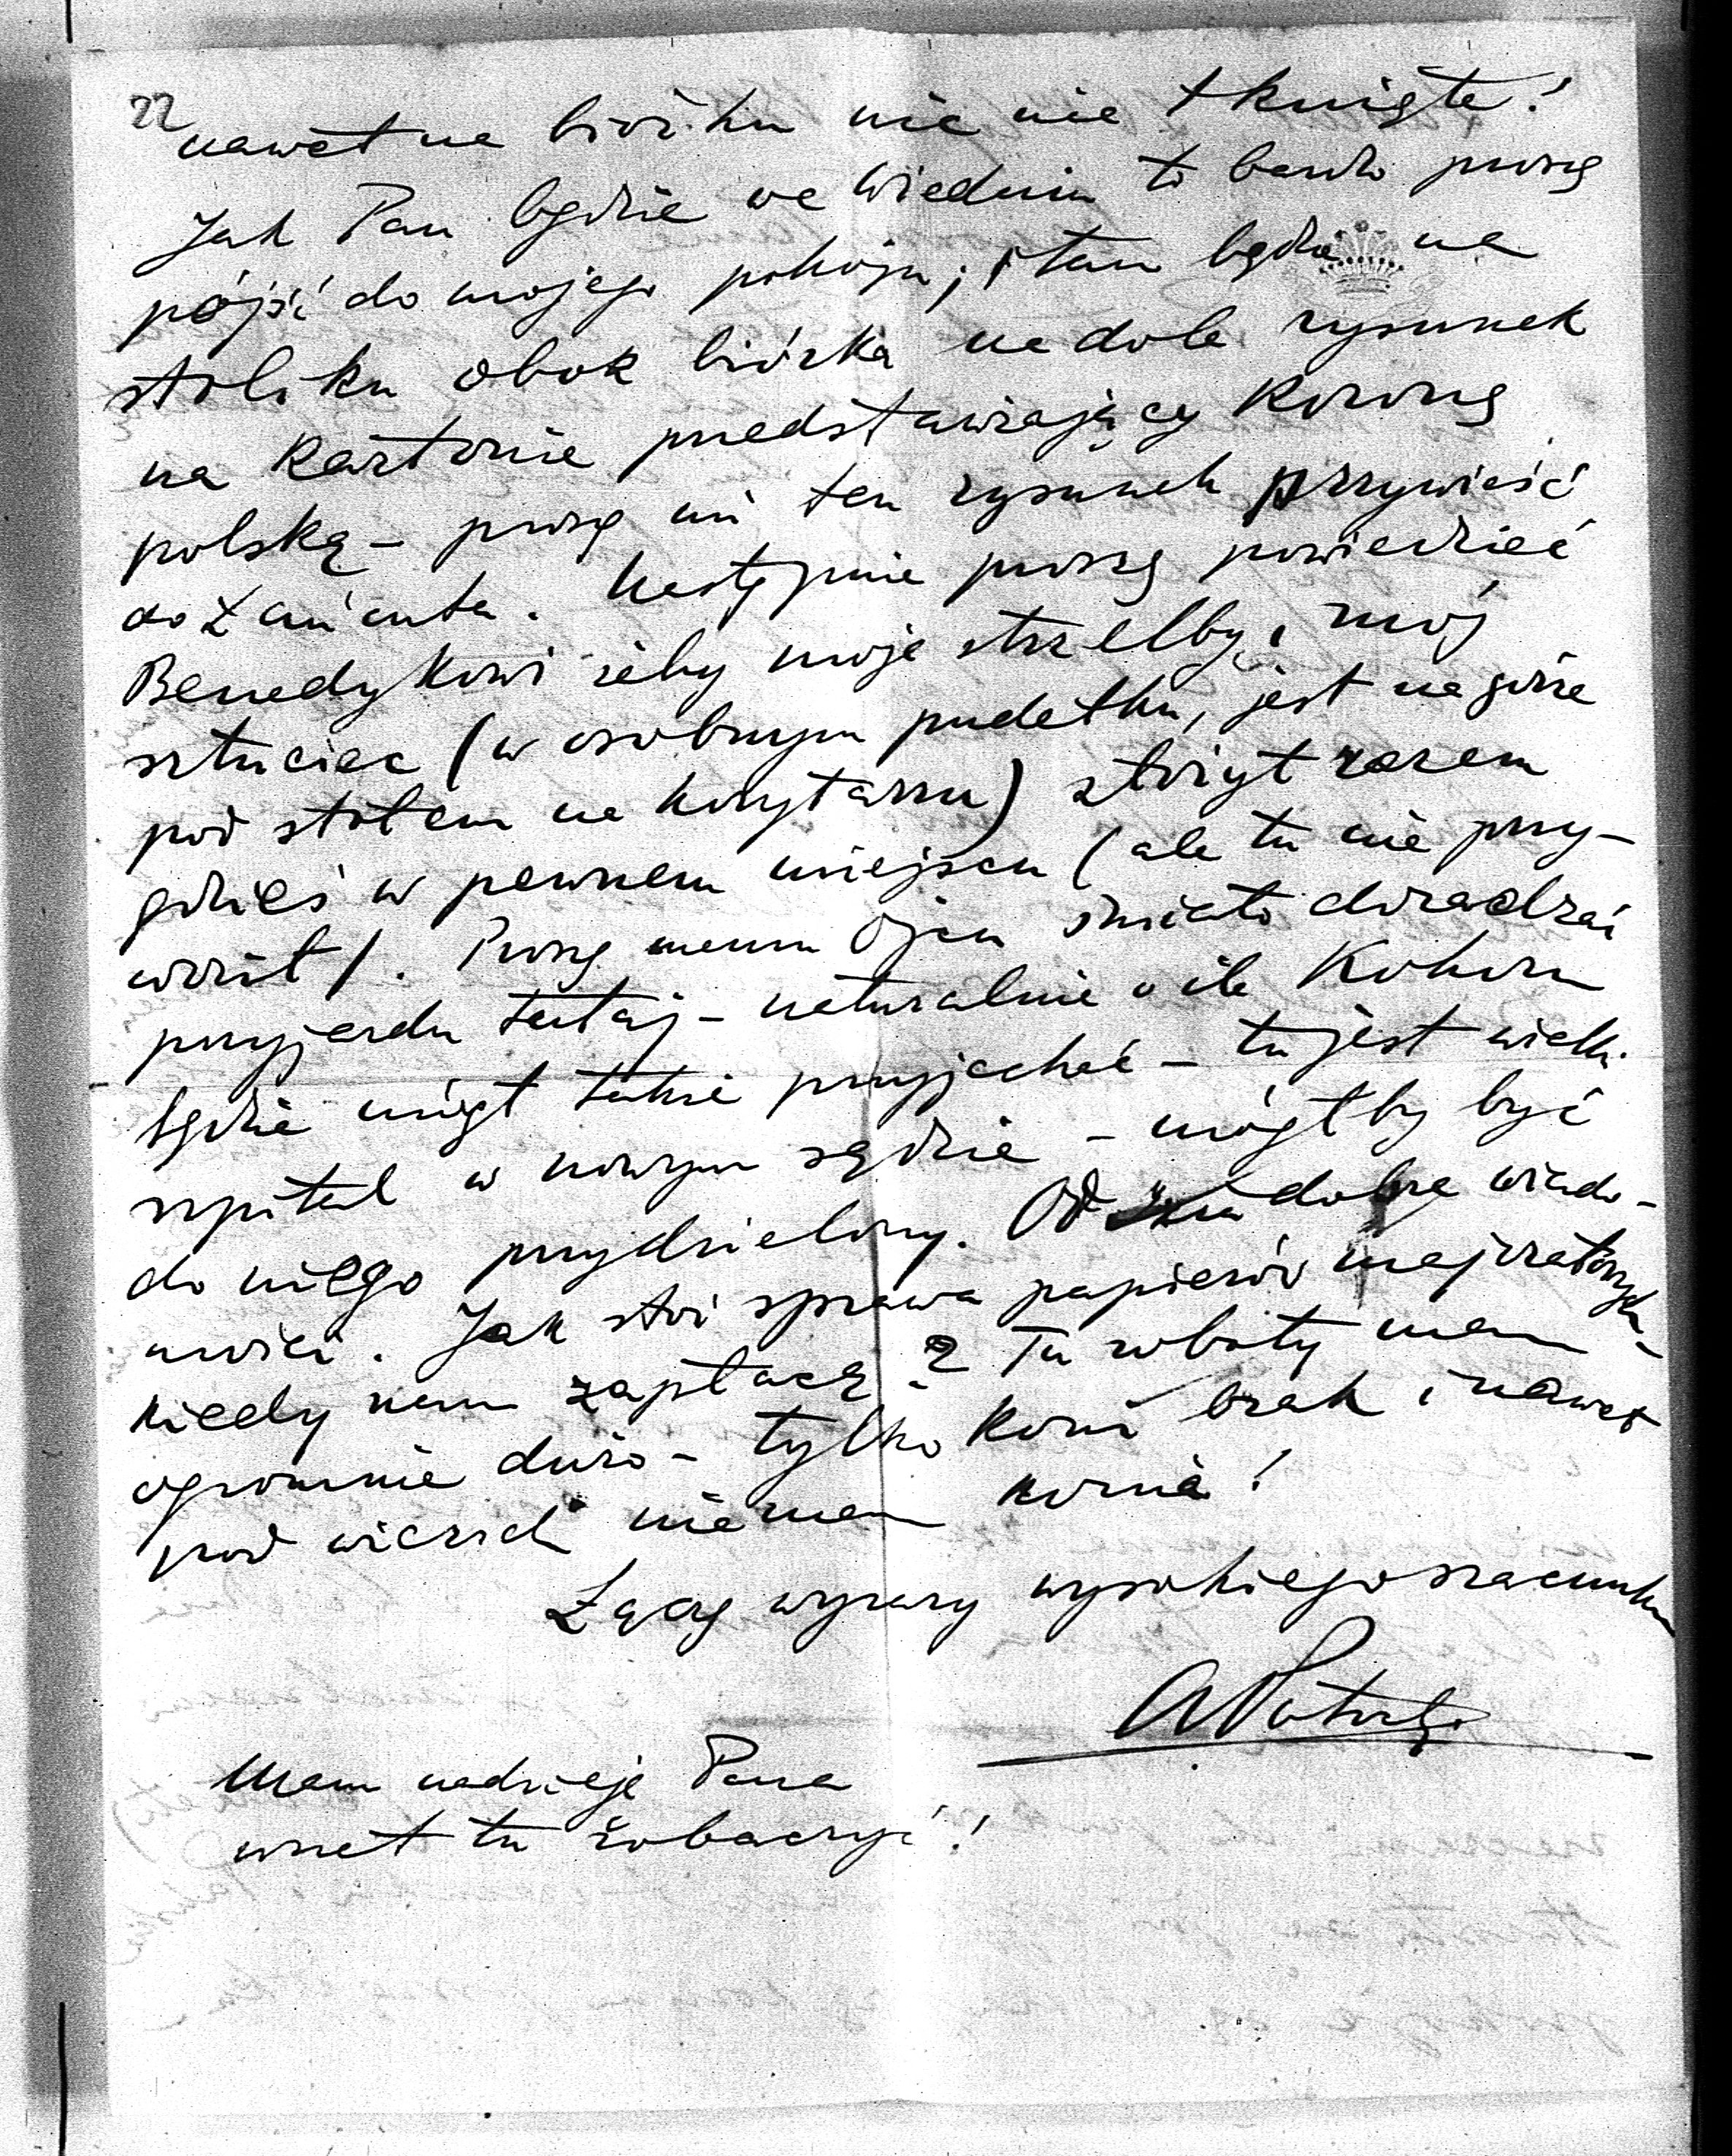 22
nawet na biórku nic nie tknięte!
Jak Pan będzie we Wiedniu to bardo proszę
pójść do mojego pokoju; i tam będzie na
stoliku obok biórka na dole rysunek
na kartonie predstawiający Koronę
polską – proszę mi ten rysunek przywieść
do Łańcuta. Następnie proszę powiedzieć
Benedykowi żeby moje strzelby, i mój
sztuciec (w osobnym pudełku, jest na górze
pod stołem na korytarzu) złożył razem
gdzieś w pewnem miejscu (ale tu nie przy-
woził). Proszę memu Ojcu śmiało doradzać
przyjazdu tutaj – naturalnie o ile Kohorn
będzie mógł także przyjechać – tu jest wielki
szpital w nowym sądzie – mógłby być
do niego przydzielony. Od dobre wiado-
mości. Jak stoi sprawa papierów majoratowych –
kiedy nam zapłacą? Tu roboty mam
ogromnie dużo – tylko koni brak i nawet
pod wierzch nie mam konia!
Łączę wyrazy wysokiego szacunku
APotocki
Mam nadzieję Pana
wnet tu zobaczyć!